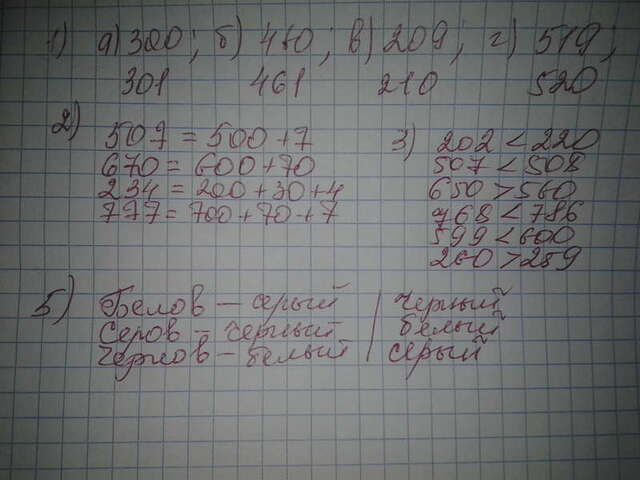 1) а) 300; б) 460; в) 209; г) 519;
301 461 210 520
2) 507 = 500 + 7
670 = 600 + 70
234 = 200 + 30 + 4
777 = 700 + 70 + 7
3) 202 < 220
507 < 508
650 > 560
768 < 786
599 < 600
260 > 259
5) Белов – серый | черный
Серов – черный | белый
Чернов – белый | серый